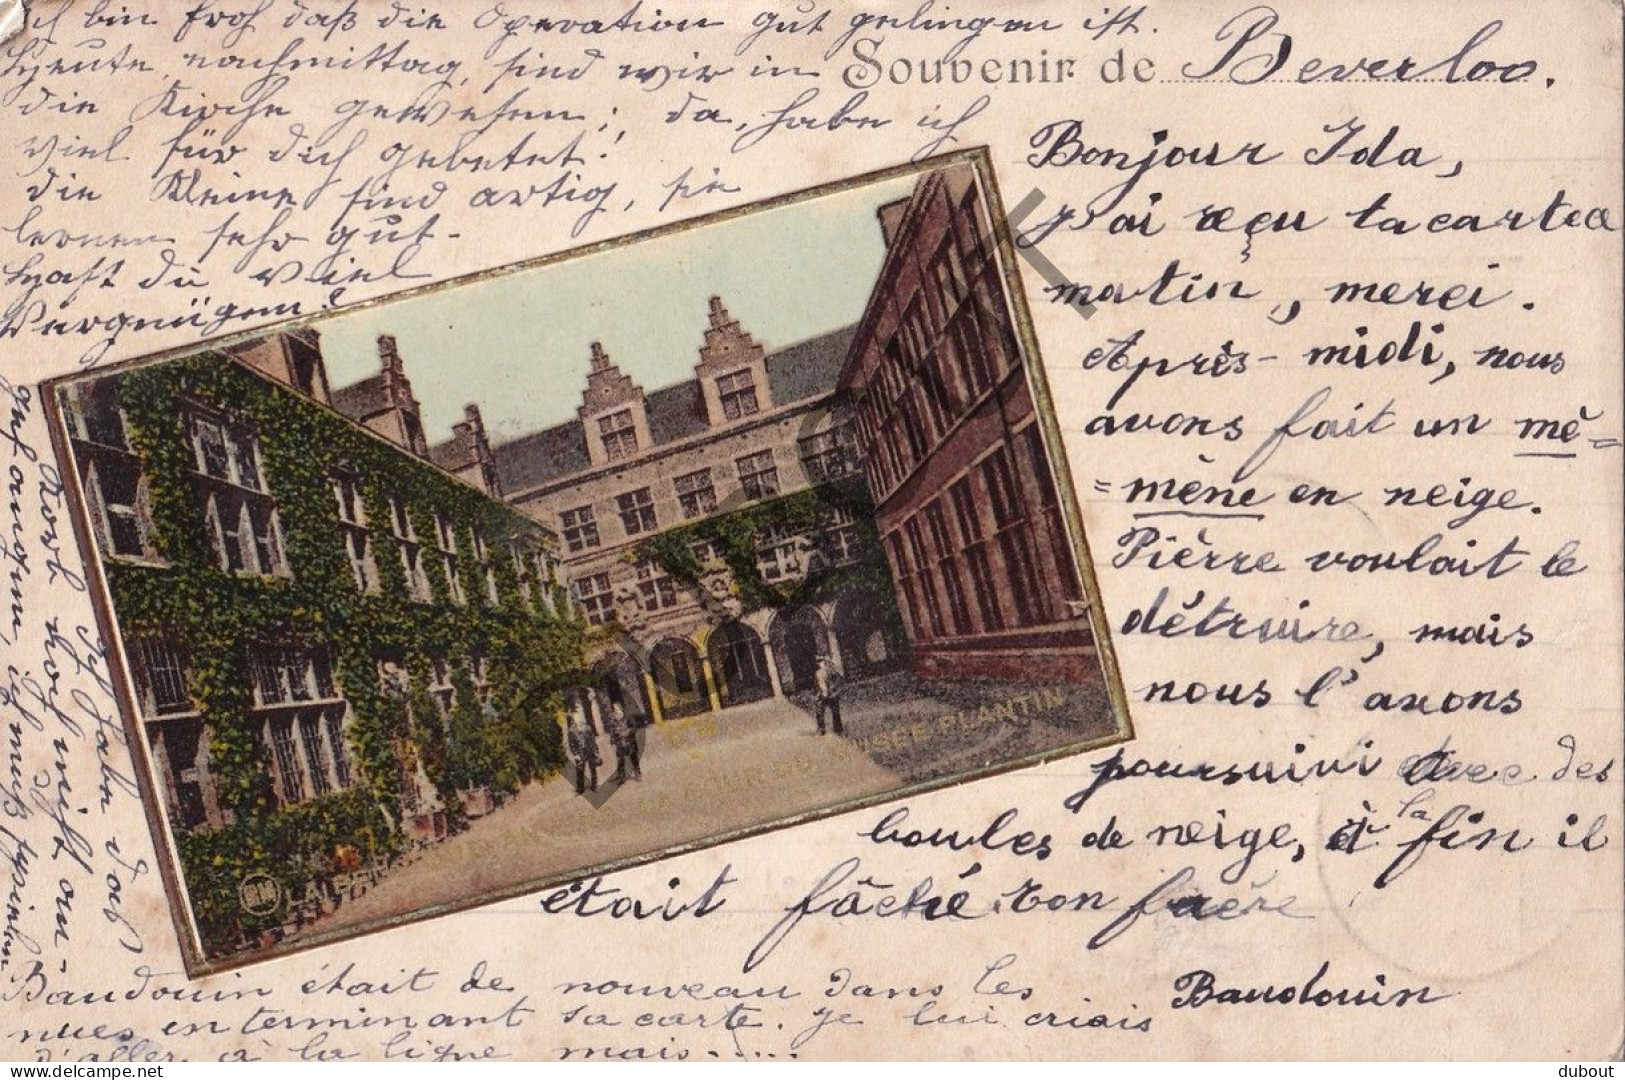 Ich bin froh daß die Operation gut gelingen ist.
Heute nachmittag, sind wir in
die Kirche gewesen; da, habe ich
viel für dich gebetet!
die Kleine sind artig, sie
lernen sehr gut.
Hast du viel
Vergnügen?
Ich habe das
Korb noch nicht an-
gefangen, ich muß spielen.
Souvenir de Beverloo.
Bonjour Ida,
j'ai reçu ta carte ce
matin, merci.
Après-midi, nous
avons fait un mé=
=mène en neige.
Pièrre voulait le
détruire, mais
nous l'avons
poursuivi avec des
boules de neige, à la fin il
était fâché. ton frère
Baudouin
Baudouin était de nouveau dans les
nues en terminant sa carte. je lui criais
d'aller à la ligne mais.....
MUSÉE PLANTIN